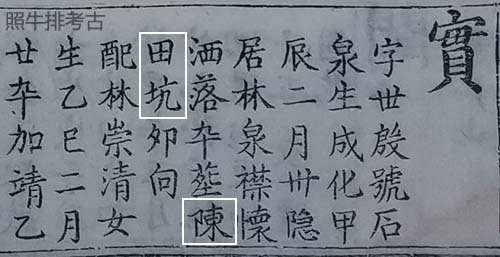 照牛排考古
實
字世殷號石
泉生成化甲
辰二月卅隐
居林泉襟懷
洒落卒塟陳
田坑夘向
配林崇清女
生乙巳二月
廿卒加靖乙